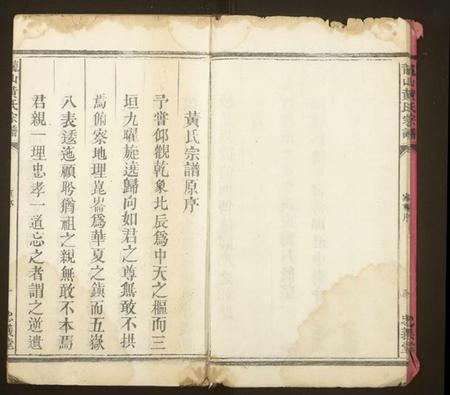 龍山黃氏宗譜
忠義堂
黃氏宗譜原序
予嘗仰觀乾象北辰為中天之樞而三
垣九曜旋遶歸向如君之尊無敢不拱
焉俯察地理崑崙為華夏之鎮而五嶽
八表逶迤顧聆猶祖之親無敢不本焉
君親一理忠孝一道忘之者謂之逆遺
龍山黃氏宗譜
忠義堂